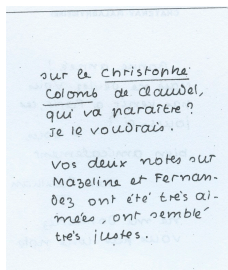 sur le Christophe
Colomb de Claudel,
qui va paraître?
Je le voudrais.
Vos deux notes sur
Mazeline et Fernan-
dez ont été très ai-
mées, ont semblé
très justes.